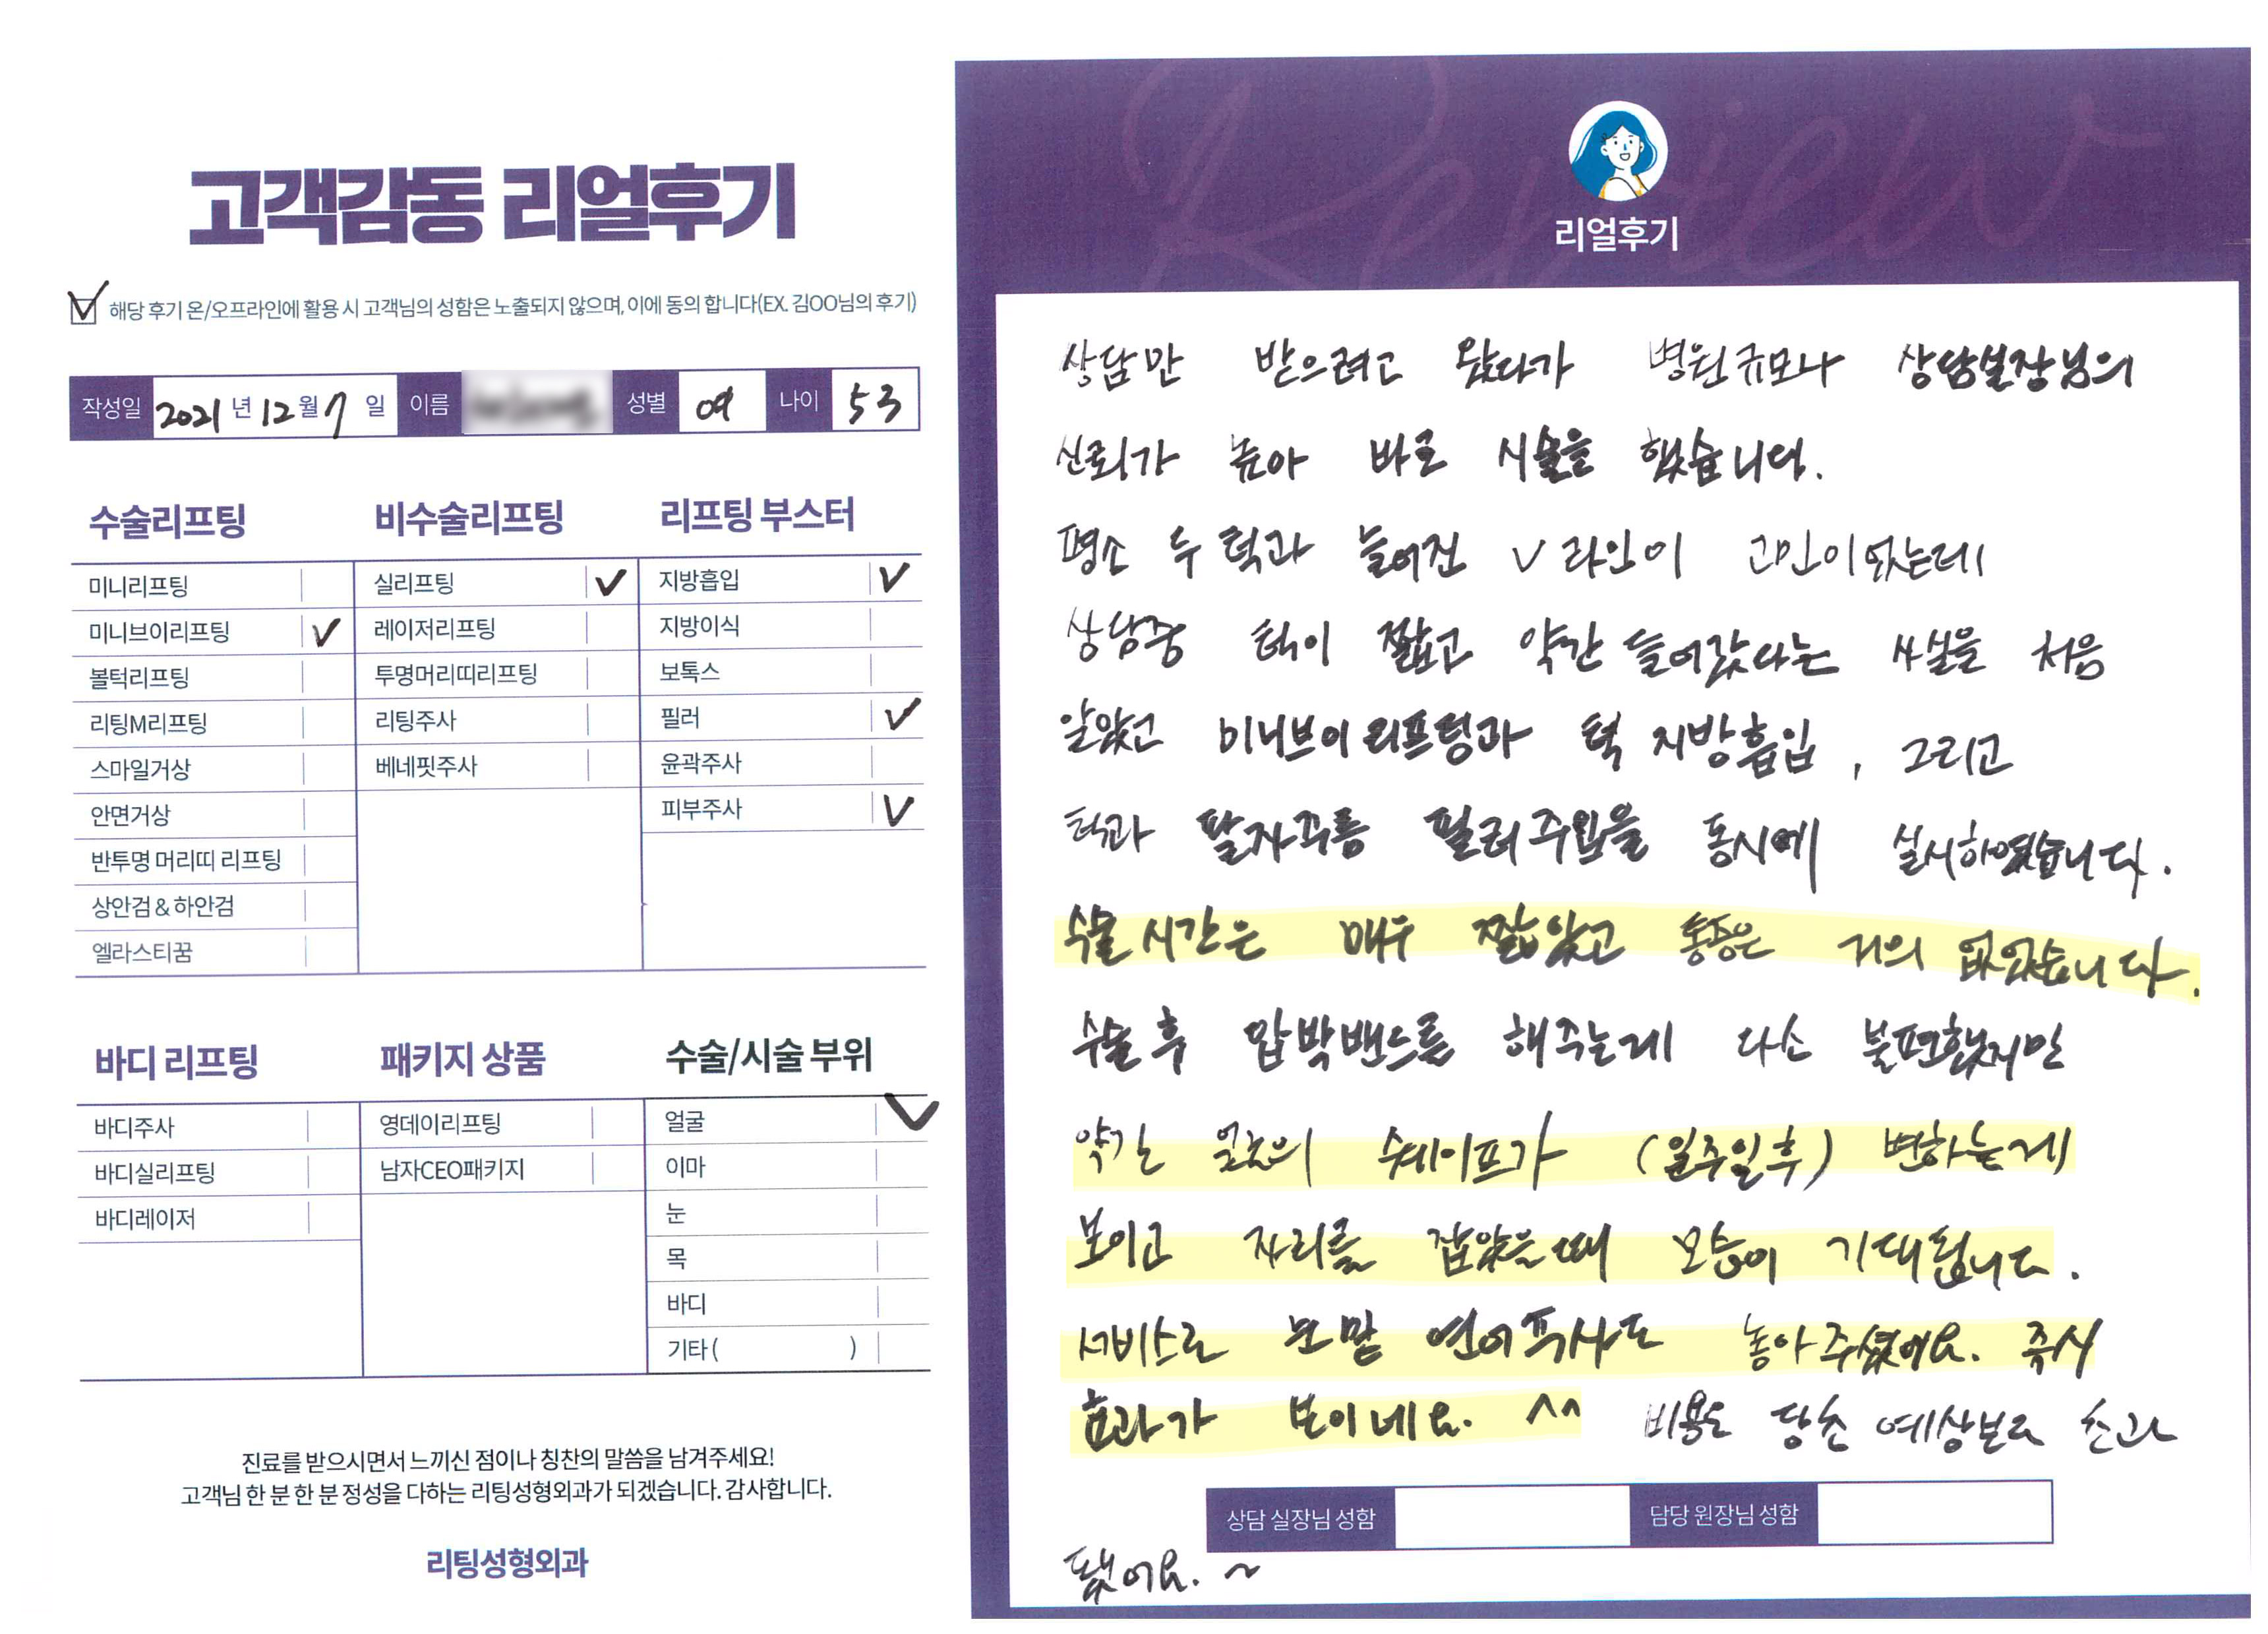 고객감동 리얼후기
해당 후기 온/오프라인에 활용 시 고객님의 성함은 노출되지 않으며, 이에 동의 합니다(EX. 김OO님의 후기)
작성일 2021 년 12 월 7 일 이름 성별 여 나이 53
수술리프팅
미니리프팅
미니브이리프팅
볼턱리프팅
리팅M리프팅
스마일거상
안면거상
반투명 머리띠 리프팅
상안검 & 하안검
엘라스티꿈
비수술리프팅
실리프팅
레이저리프팅
투명머리띠리프팅
리팅주사
베네핏주사
리프팅 부스터
지방흡입
지방이식
보톡스
필러
윤곽주사
피부주사
바디 리프팅
바디주사
바디실리프팅
바디레이저
패키지 상품
영데이리프팅
남자CEO패키지
수술/시술 부위
얼굴
이마
눈
목
바디
기타 ( )
진료를 받으시면서 느끼신 점이나 칭찬의 말씀을 남겨주세요!
고객님 한 분 한 분 정성을 다하는 리팅성형외과가 되겠습니다. 감사합니다.
리팅성형외과
Review
리얼후기
상담만 받으려고 왔다가 병원규모나 상담실장님의
신뢰가 높아 바로 시술을 했습니다.
평소 두 턱과 늘어진 V 라인이 고민이었는데
상담중 턱이 짧고 약간 들어갔다는 사실을 처음
알았고 미니브이 리프팅과 턱 지방흡입, 그리고
턱과 팔자주름 필러주입을 동시에 실시하였습니다.
수술 시간은 매우 짧았고 통증은 거의 없었습니다.
수술 후 압박밴드를 해주는게 다소 불편했지만
약간 얼굴의 쉐이프가 (일주일후) 변하는게
보이고 자리를 잡았을때 모습이 기대됩니다.
서비스로 눈밑 연어주사도 놓아주셨어요. 즉시
효과가 보이네요. ^^ 비용도 당초 예상보다 초과
됐어요. ~
상담 실장님 성함
담당 원장님 성함